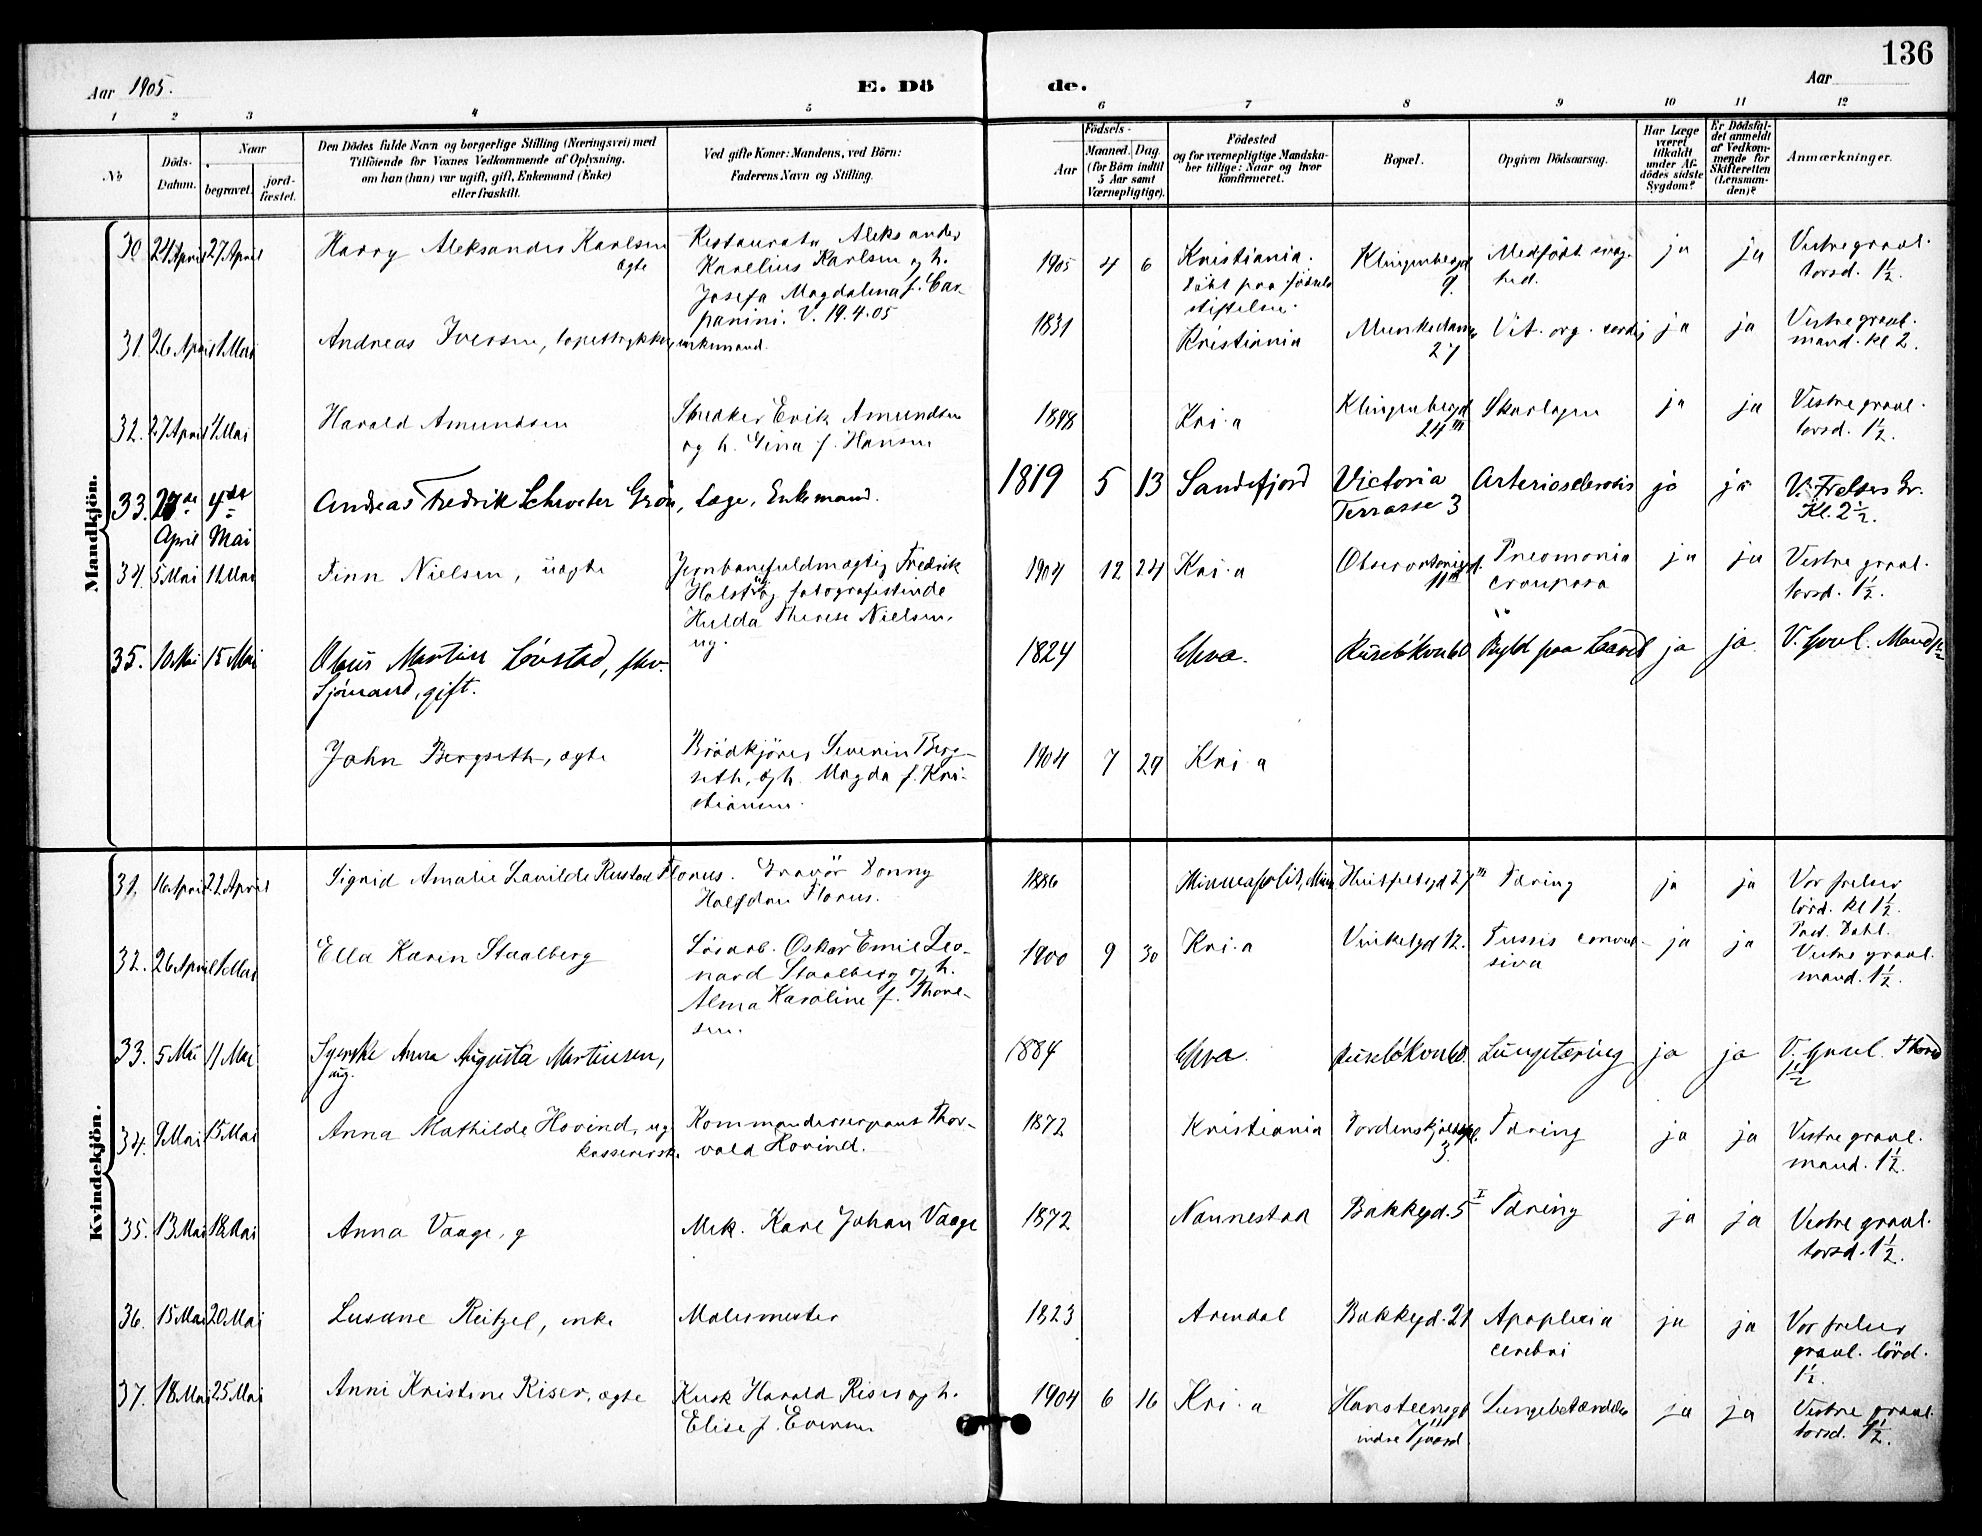 136
Aar 1905.
E. Dö
de.
Aar
1 2 3 4 5 6 7 8 9 10 11 12
No
Döds-
Datum.
Naar
begravet.
jord-
fæstet.
Den Dödes fulde Navn og borgerlige Stilling (Næringsvei) med
Tilföiende for Voxnes Vedkommende af Oplysning,
om han (hun) var ugift, gift, Enkemand (Enke)
eller fraskilt.
Ved gifte Koner: Mandens, ved Börn:
Faderens Navn og Stilling.
Födsels-
Aar
Maaned. Dag.
(for Börn indtil
5 Aar samt
Værnepligtige).
Födested
og for værnepligtige Mandska-
ber tillige: Naar og hvor
konfirmeret.
Bopæl.
Opgiven Dödsaarsag.
Har Læge
været
tilkaldt
under Af-
dödes sidste
Sygdom?
Er Dödsfal-
det anmeldt
af Vedkom-
mende for
Skifteretten
(Lensman-
den)?
Anmærkninger.
Mandkjön.
30. 24 April 27 April Harry Aleksander Karlsen
ægte
Restauratør Aleksander
Karelius Karlsen og h.
Josefa Magdalena f. Car-
panini. V. 19.4.05
1905 4 6 Kristiania.
døbt paa fødsels
stiftelsen.
Klingenbergd
9.
Medfødt svag-
hed.
ja ja Vestre gravl.
torsd. 1½.
31. 26 April 1 Mai Andreas Iversen, tapettrykker, enkemand.
1831 Kristiania Munkedamsv
27
Vit. org. cordis ja ja Vestre gravl.
mand. kl 2.
32. 27 April 4 Mai Harald Amundsen
Snedker Erik Amundsen
og h. Gina f. Hansen
1898 Kri.a Klingenbergd
24 III
Skarlagen ja ja Vestre gravl.
torsd. 1½.
33. 27de April 4de Mai Andreas Fredrik Schroeter Grön, Læge, Enkemand.
1819 5 13 Sandefjord Victoria
Terrasse 3
Arteriosclerosis ja ja V. Frelsers Gr.
Kl. 2½.
34. 5 Mai 11 Mai Finn Nielsen, uægte
Jernbanefuldmægtig Fredrik
Holst ug og fotografistinde
Hulda Therese Nielsen,
ug.
1904 12 24 Kri.a Observatoriegd.
11 III
Pneomonia
crouposa
ja ja Vestre gravl.
torsd. 1½.
35. 10 Mai 15 Mai Olaus Martin Lövstad, fhv.
Sjömand, gift.
1824 Chra. Ruselökvn 60 Byld paa Laaret ja ja V. Gravl. Mand 1½
John Bergseth, ægte
Brödkjörer Severin Berg-
seth, og h. Magda f. Kri-
stiansen.
1904 7 29 Kri.a
Kvindekjön.
31. 16 April 22 April Sigrid Amalie Lavilde Rustad Florus. Gravör Conny
Halfdan Florus.
1886 Minneapolis, Minn Huitfeldtsgd 27 III Tæring ja ja Vor frelser
lörd. kl 1½.
Past. Dahl.
32. 26 April 1 Mai Ella Karin Staalberg
Lösarb. Oskar Emil Leo-
nard Staalberg og h.
Alma Karoline f. Thorel-
sen.
1900 9 30 Kri.a Vinkelgd 12. Tussis convul-
siva
ja ja Vestre gravl.
mand. 1½.
33. 5 Mai 11 Mai Syerske Anna Augusta Martinsen,
ug.
1884 Chra. Ruselökvn 60. Lungetæring ja ja V. Gravl. Thorsd
1½
34. 9 Mai 15 Mai Anna Mathilde Hovind, ug
kassererske
Kommandersergeant Thor-
vald Hovind.
1872 Kristiania Tordenskjoldspl.
3.
Tæring ja ja Vestre gravl.
mand. 1½.
35. 13 Mai 18 Mai Anna Vaage, g Mek. Karl Johan Vaage
1872 Nannestad Bakkegd. 5 I Tæring ja ja Vestre gravl.
torsd. 1½.
36. 15 Mai 20 Mai Lusane Reitzel, enke Malermester
1823 Arendal Bakkegd. 21 Apoplexia
cerebri
ja ja Vor frelser
gravl. lörd.
1½.
37. 18 Mai 25 Mai Anni Kristine Riser, ægte Kusk Harald Riser og h.
Elise f. Evensen
1904 6 16 Kri.a Hansteensgd
indre Gjaard
Lungebetændelse ja ja Vestre gravl.
torsd. 1½.